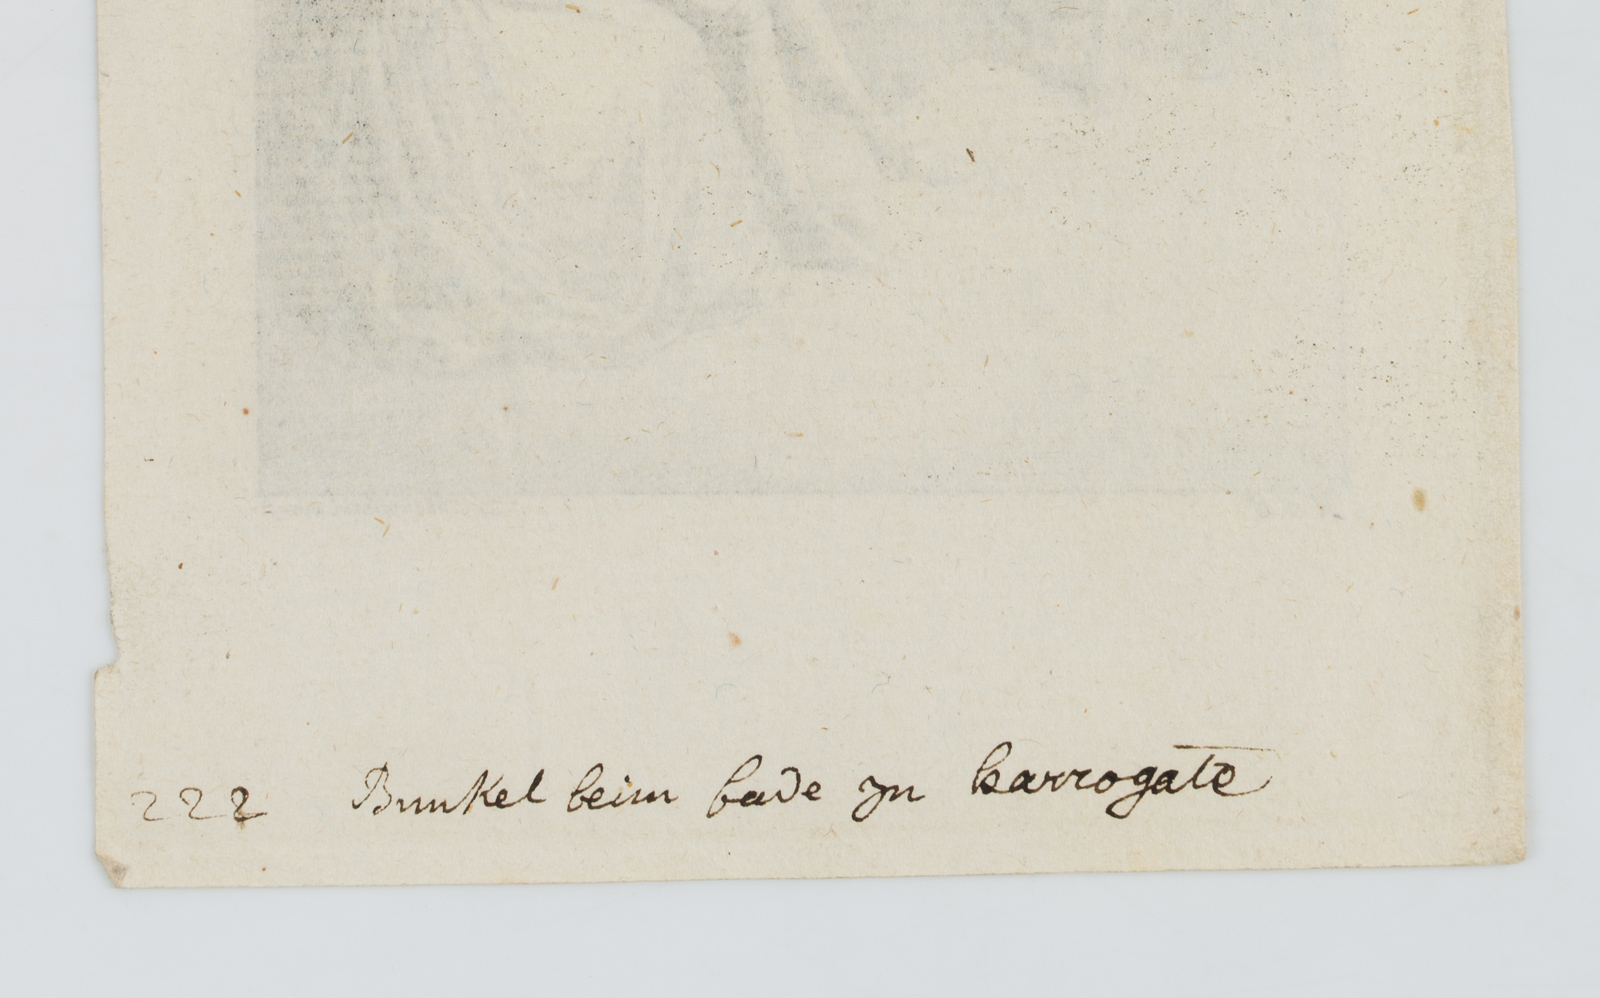 222 Bunkel beim bade zu harrogate